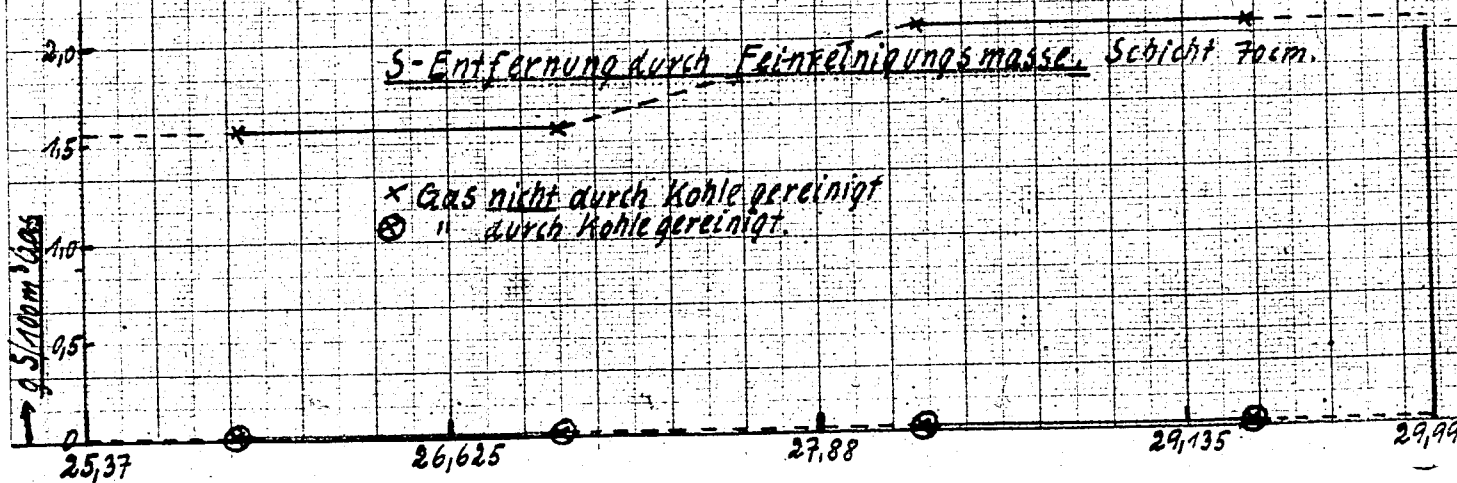 2,0
S-Entfernung durch Feinreinigungsmasse. Schicht 70cm.
1,5
× Gas nicht durch Kohle gereinigt
⊗ " durch Kohle gereinigt.
1,0
g S/100m³ Gas
0,5
0
25,37
26,625
27,88
29,135
29,99